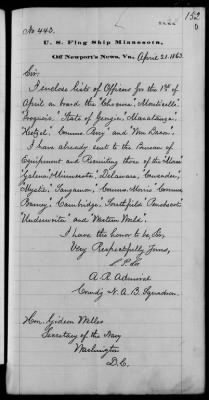 152
No 443.
U. S. Flag Ship Minnesota,
Off Newport's News, Va., April 21. 1863.
Sir:
I enclose lists of Officers for the 1st of
April on board the "Chocura", "Monticello",
"Iroquois", "State of Georgia", "Maratanza",
"Hetzel", "Commo. Perry" and "Wm Bacon".
I have already sent to the Bureau of
Equipment and Recruiting those of the
"Galena" "Minnesota", "Delaware", "Crusader",
"Mystic", "Sangamon", "Commo. Morris" "Commo.
Barney", "Cambridge", "Southfield" "Penobscot",
"Underwriter" and "Western World".
I have the honor to be, Sir,
Very Respectfully Yours,
S. P. Lee
A. R. Admiral
Comdg N. A. B. Squadron.
Hon. Gideon Welles
Secretary of the Navy
Washington
D.C.